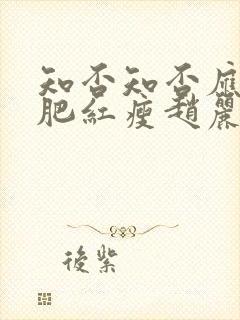 知否知否应
肥红瘦趙麗
後紫